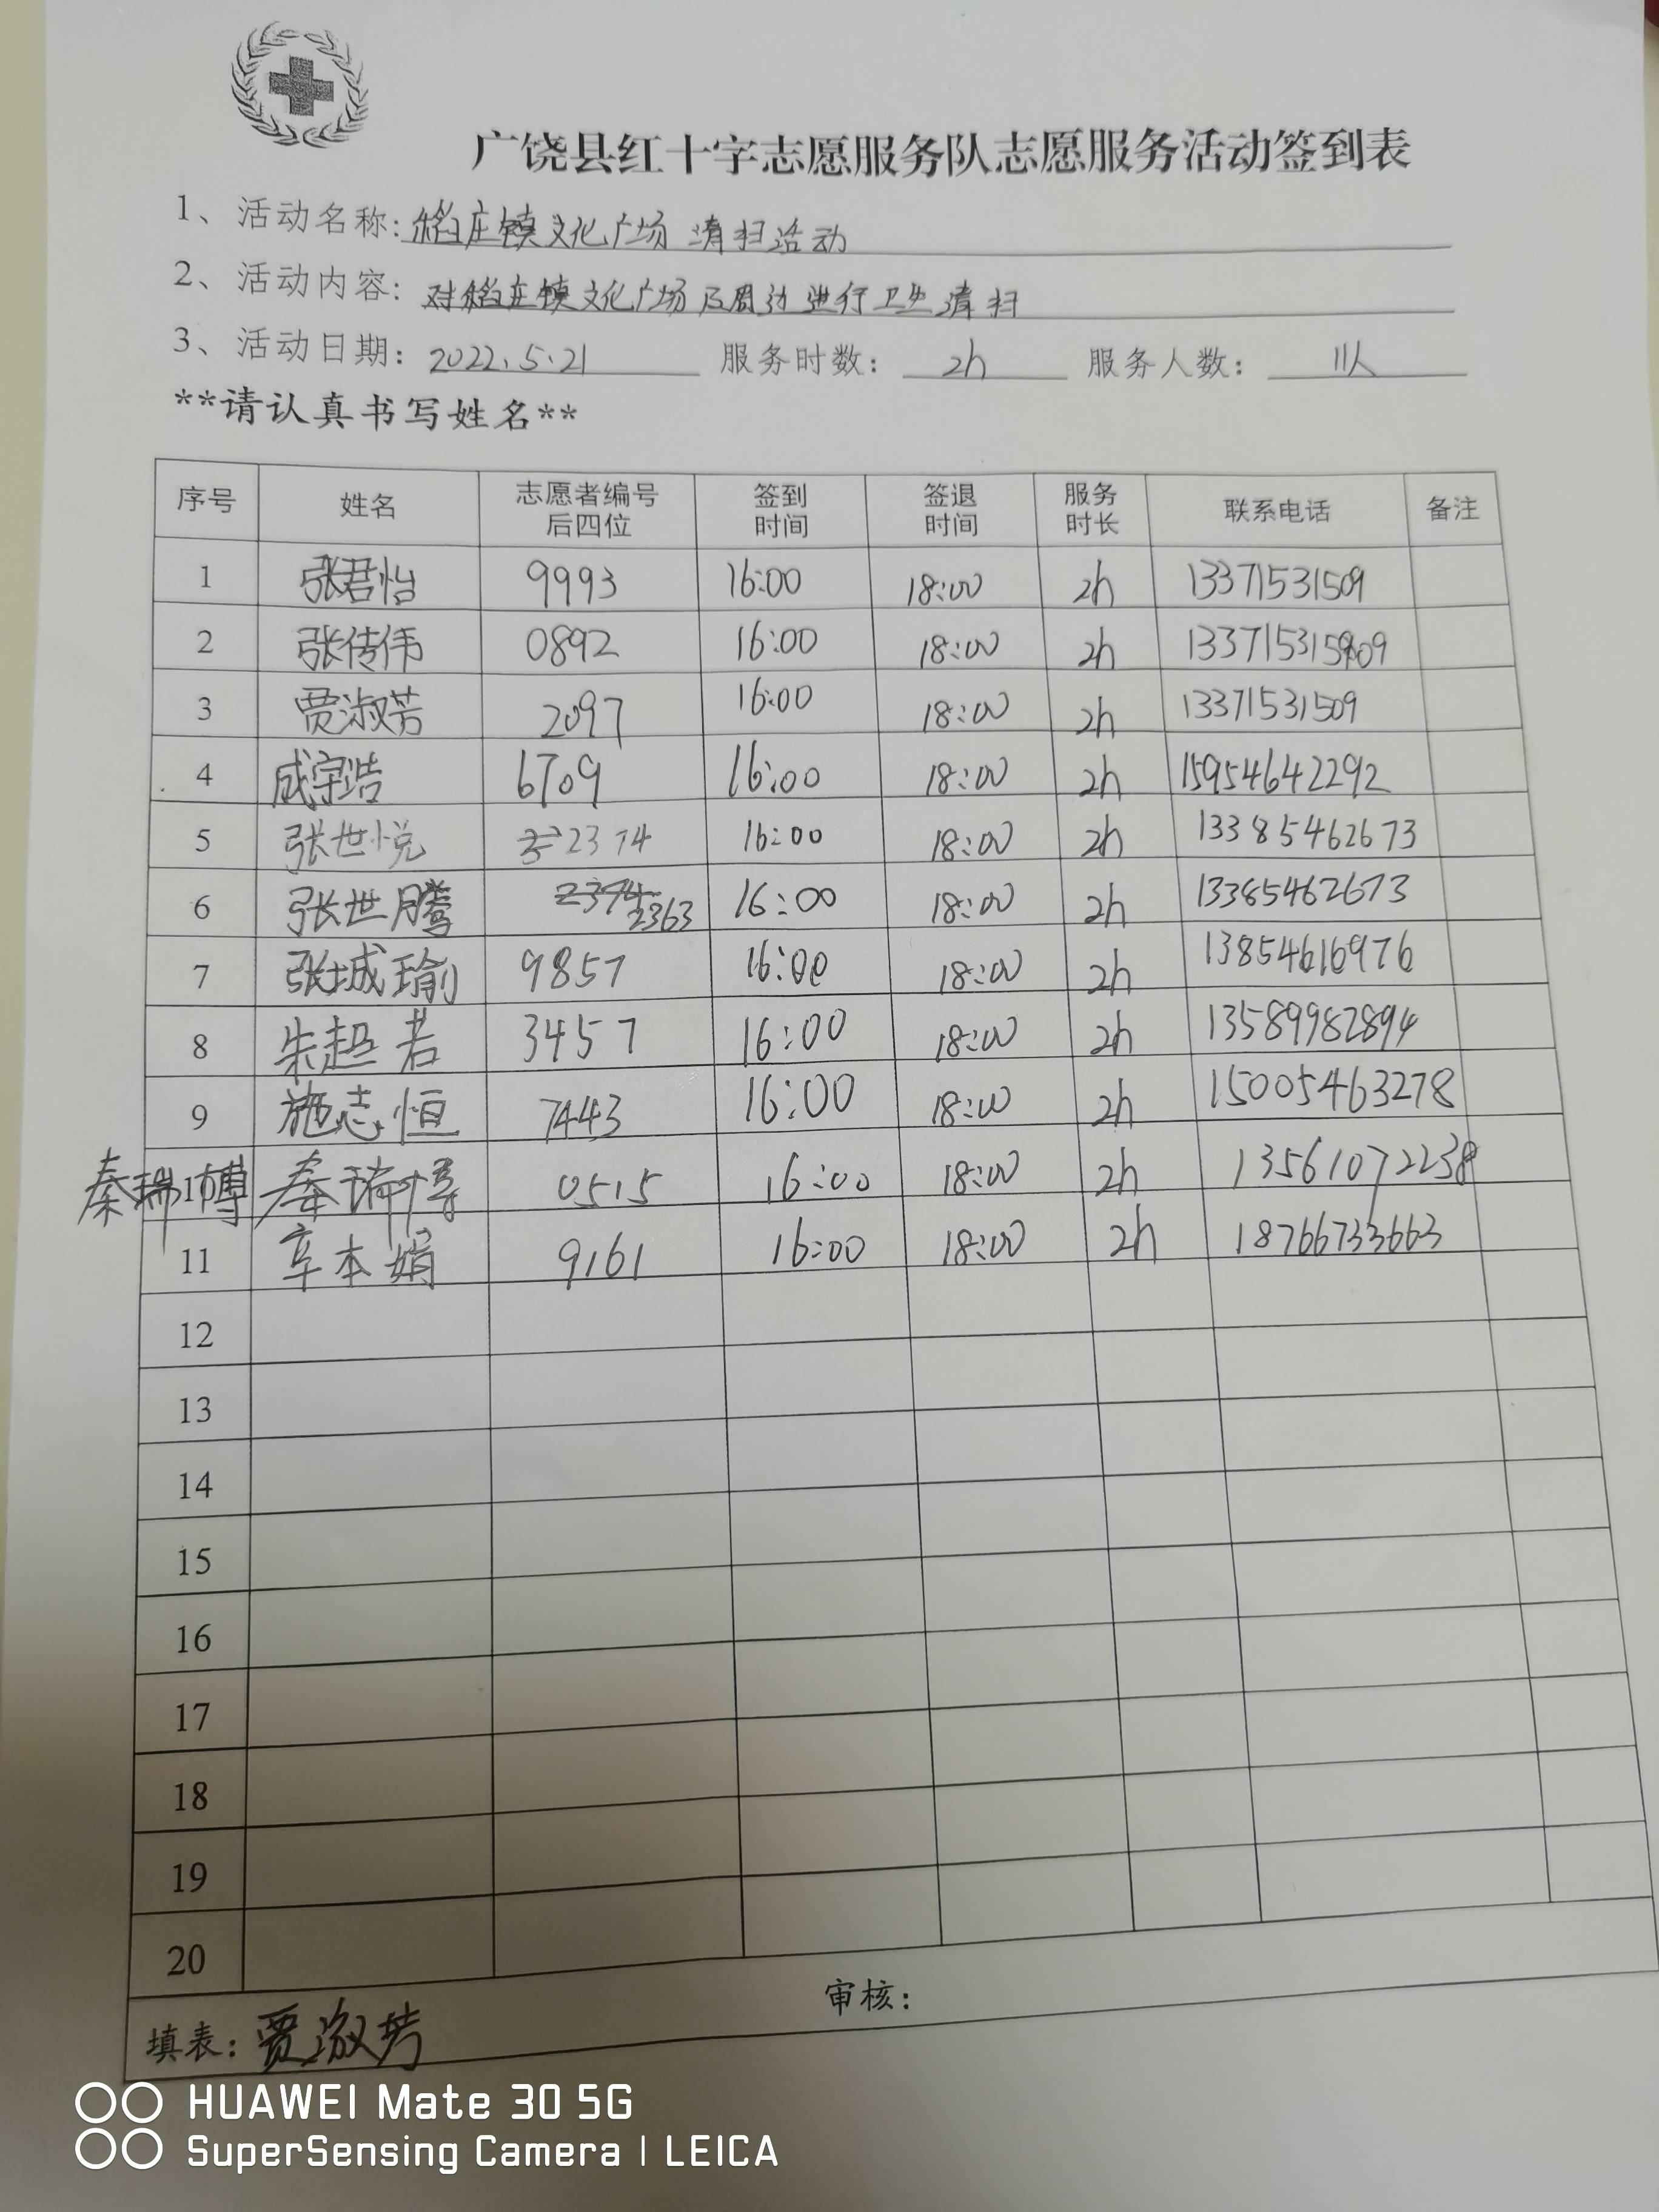 广饶县红十字志愿服务队志愿服务活动签到表
1、活动名称: 稻庄镇文化广场 清扫活动
2、活动内容: 对稻庄镇文化广场及周边进行卫生清扫
3、活动日期: 2022.5.21 服务时数: 2h 服务人数: 11人
**请认真书写姓名**
序号 姓名 志愿者编号后四位 签到时间 签退时间 服务时长 联系电话 备注
1 张君怡 9993 16:00 18:00 2h 13371531509
2 张传伟 0892 16:00 18:00 2h 13371531509
3 贾淑芳 2097 16:00 18:00 2h 13371531509
4 成宇浩 6709 16:00 18:00 2h 15954642292
5 张世悦 2374 16:00 18:00 2h 13385462673
6 张世腾 2363 16:00 18:00 2h 13385462673
7 张城瑜 9857 16:00 18:00 2h 13854616976
8 朱超若 3457 16:00 18:00 2h 13589982894
9 施志恒 7443 16:00 18:00 2h 15005463278
秦瑞博 10 秦瑞博 0515 16:00 18:00 2h 13561072238
11 辛本娟 9161 16:00 18:00 2h 18766733663
12
13
14
15
16
17
18
19
20
填表: 贾淑芳 审核:
HUAWEI Mate 30 5G
SuperSensing Camera | LEICA